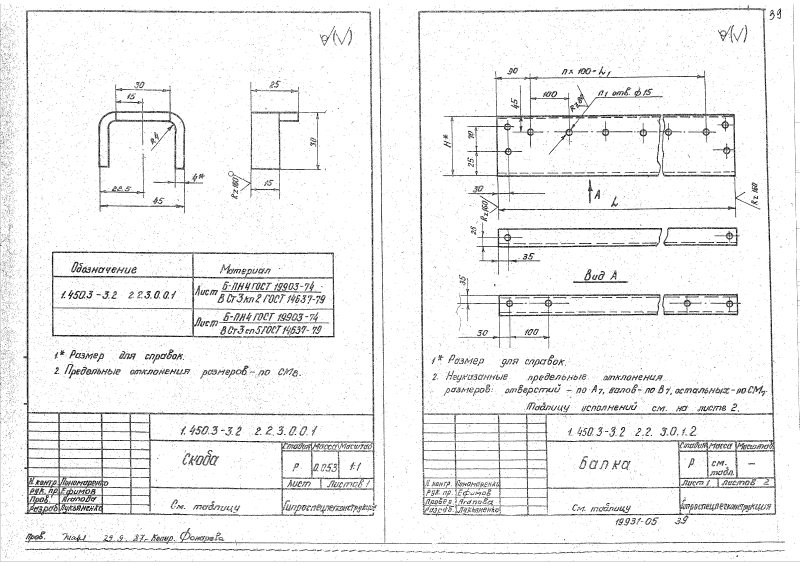 39
√(√)
30
15
R4
22.5
45
4*
25
30
15
Rz160
Обозначение Материал
1.450.3-3.2 2.2.3.0.0.1 Лист Б-ПН4 ГОСТ 19903-74
В Ст3кп2 ГОСТ 14637-79
Лист Б-ПН4 ГОСТ 19903-74
В Ст3сп5 ГОСТ 14637-79
1* Размер для справок.
2. Предельные отклонения размеров - по СМ8.
1.450.3-3.2 2.2.3.0.0.1
Скоба
Стадия Масса Масштаб
Р 0.053 1:1
Лист Листов 1
Н.контр. Пономаренко
Рук. пр. Ефимов
Пров. Агапова
Разраб. Лукьяненко
См. таблицу
Гипроспецлегконструкция
Пров. 29.9.87г. Копир. Фокарева
√(√)
90
n×100-L1
100
Rz80
n1 отв. ф15
45
H*
70
25
30
А
L
Rz160
Rz160
25
35
Вид А
35
30
100
1* Размер для справок.
2. Неуказанные предельные отклонения
размеров: отверстий - по А7, валов - по В7, остальных - по СМ7.
Таблицу исполнений см. на листе 2.
1.450.3-3.2 2.2.3.0.1.2
Балка
Стадия Масса Масштаб
Р см. табл. -
Лист 1 Листов 2
Н.контр. Пономаренко
Рук. пр. Ефимов
Провер. Агапова
Разраб. Лукьяненко
См. таблицу
Гипроспецлегконструкция
19931-05 39